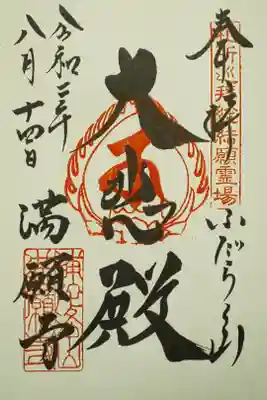 奉拝
ふだらく山
結願霊場
大悲殿
令和三年
八月十四日
満願寺